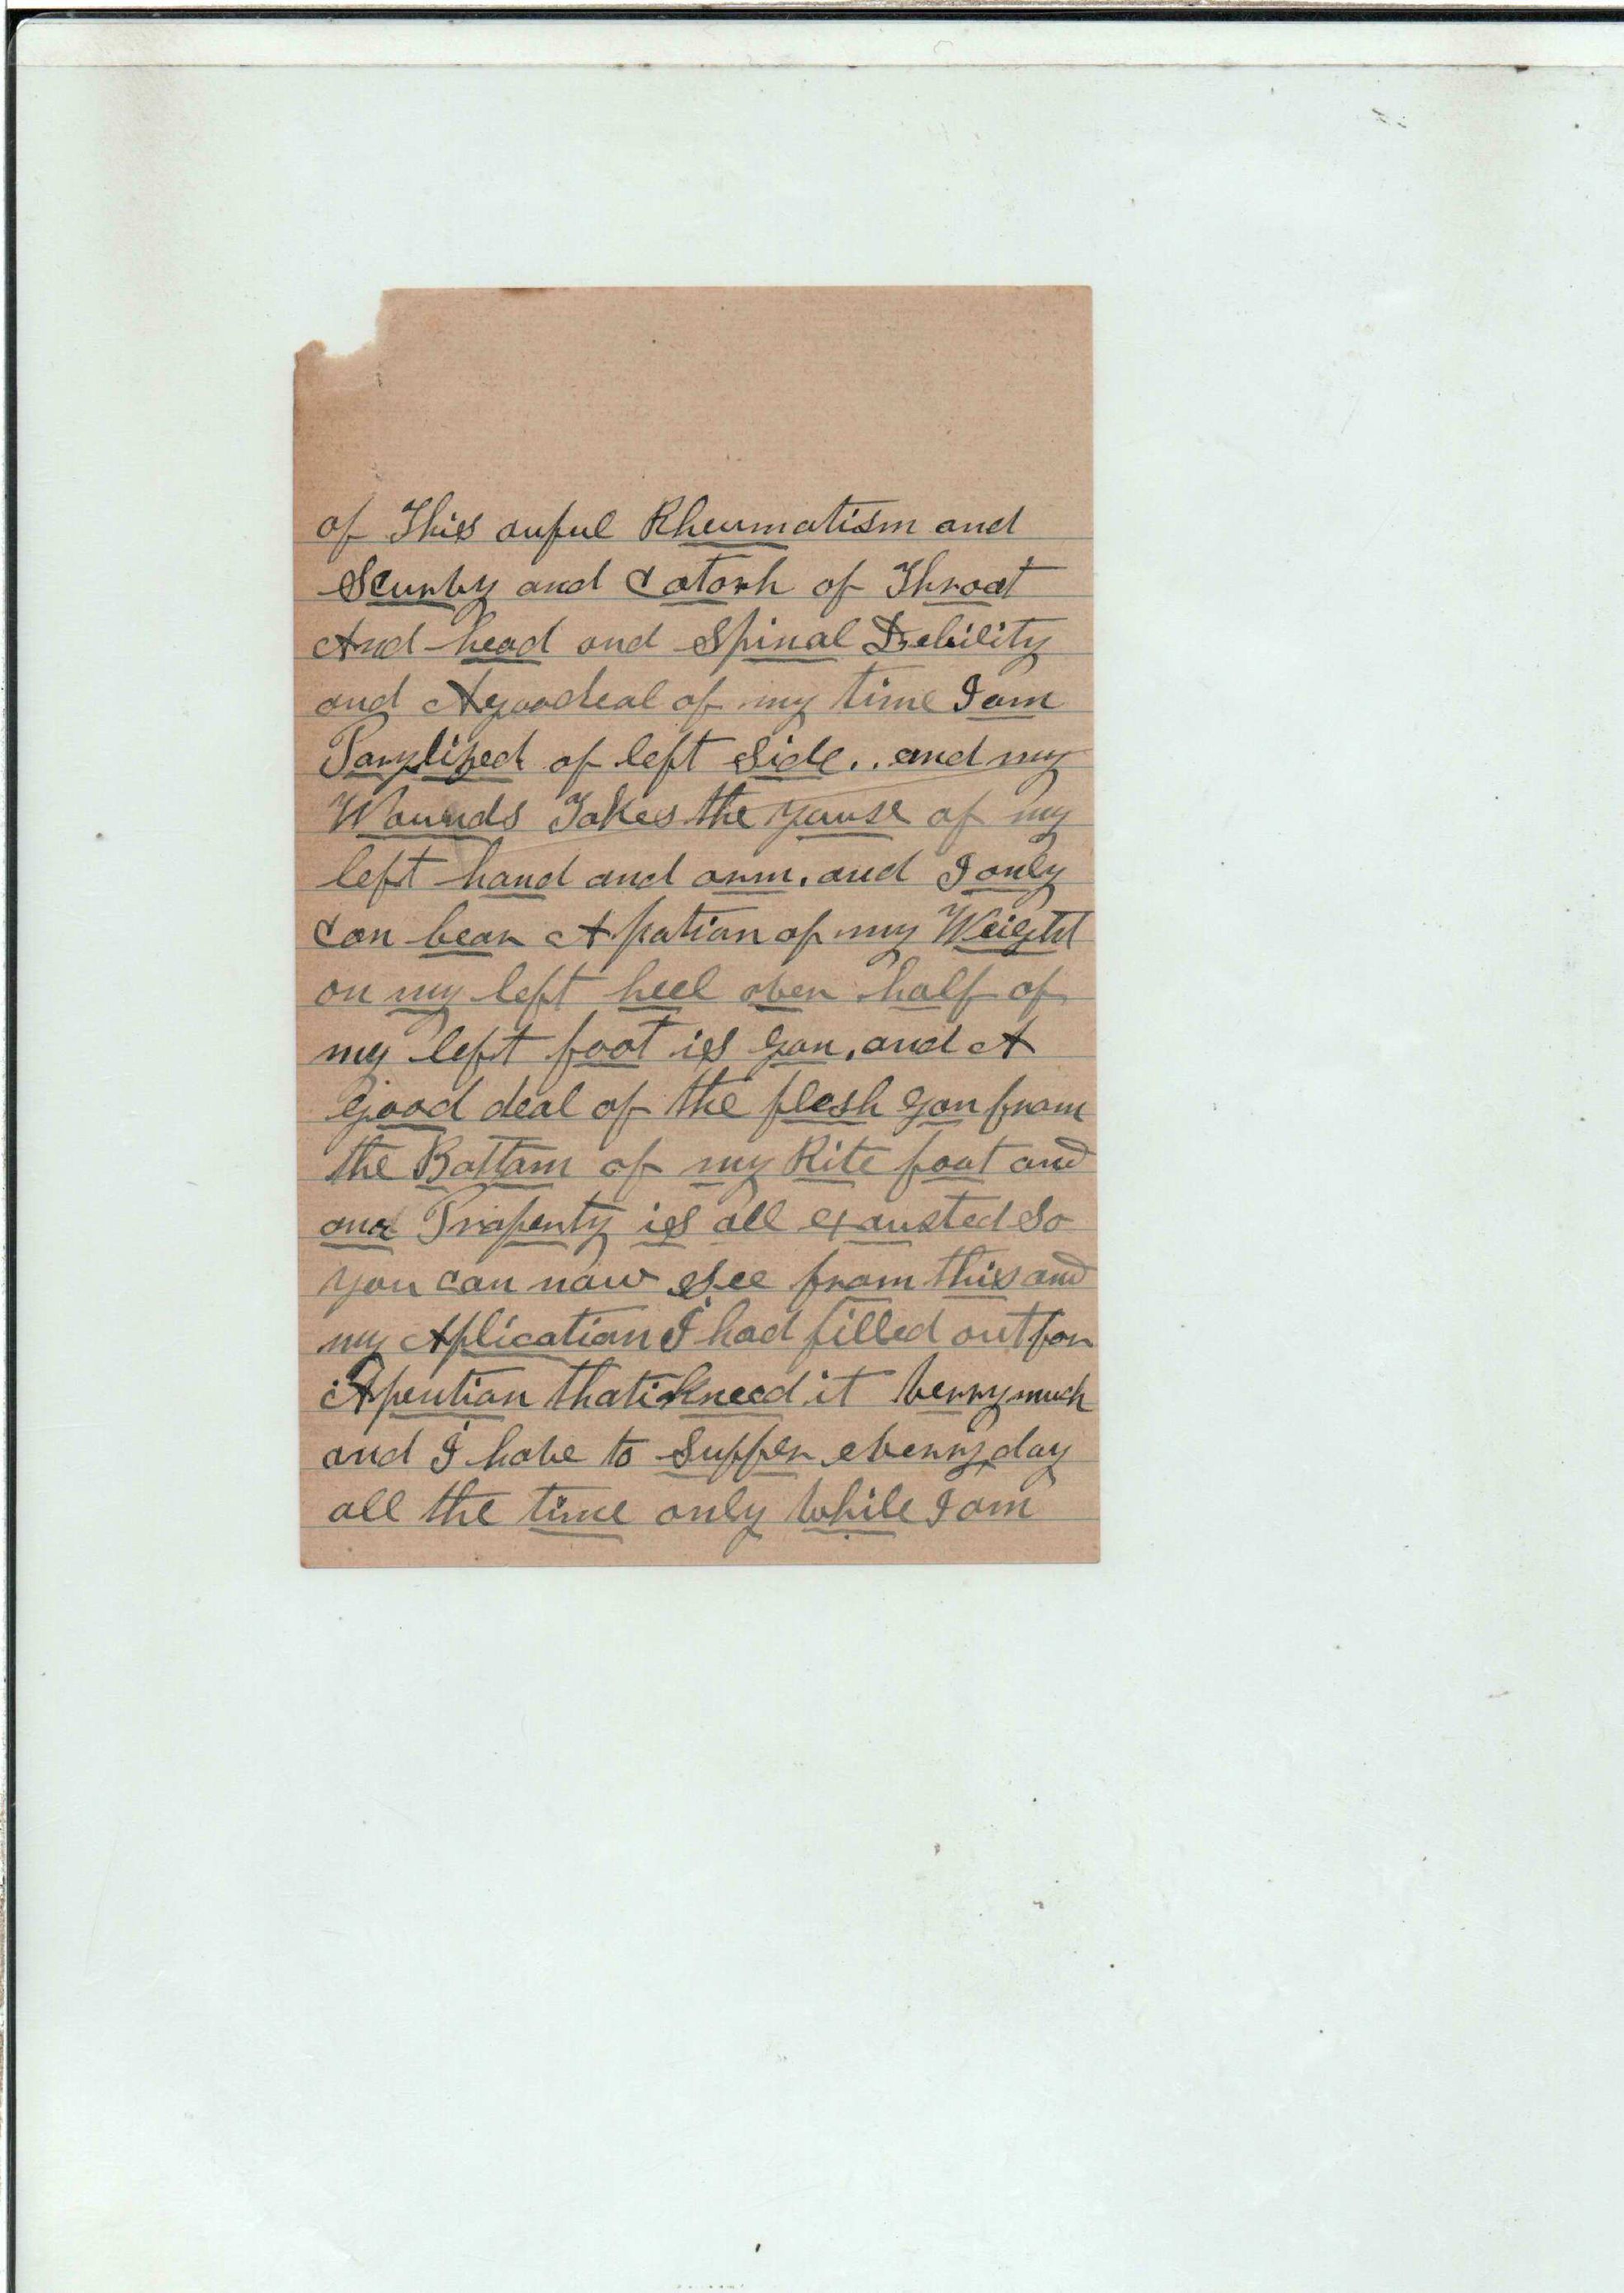 of This auful Rheumatism and
Scurvy and Catorh of Throat
And head and Spinal Debility
and A goodeal of my time I am
Parylized of left Side.. and my
Wounds Takes the yause of my
left hand and arm. and I only
Can bear A potian of my Weight
on my left heel over half of
my left foot is gon. and A
Good deal of the flesh gon from
the Bottam of my Rite foot and
and Property is all exausted So
you can now See from this and
my Aplication I had filled out for
A pention that i kneed it verry much
and I have to Suffer everry day
all the time only While I am